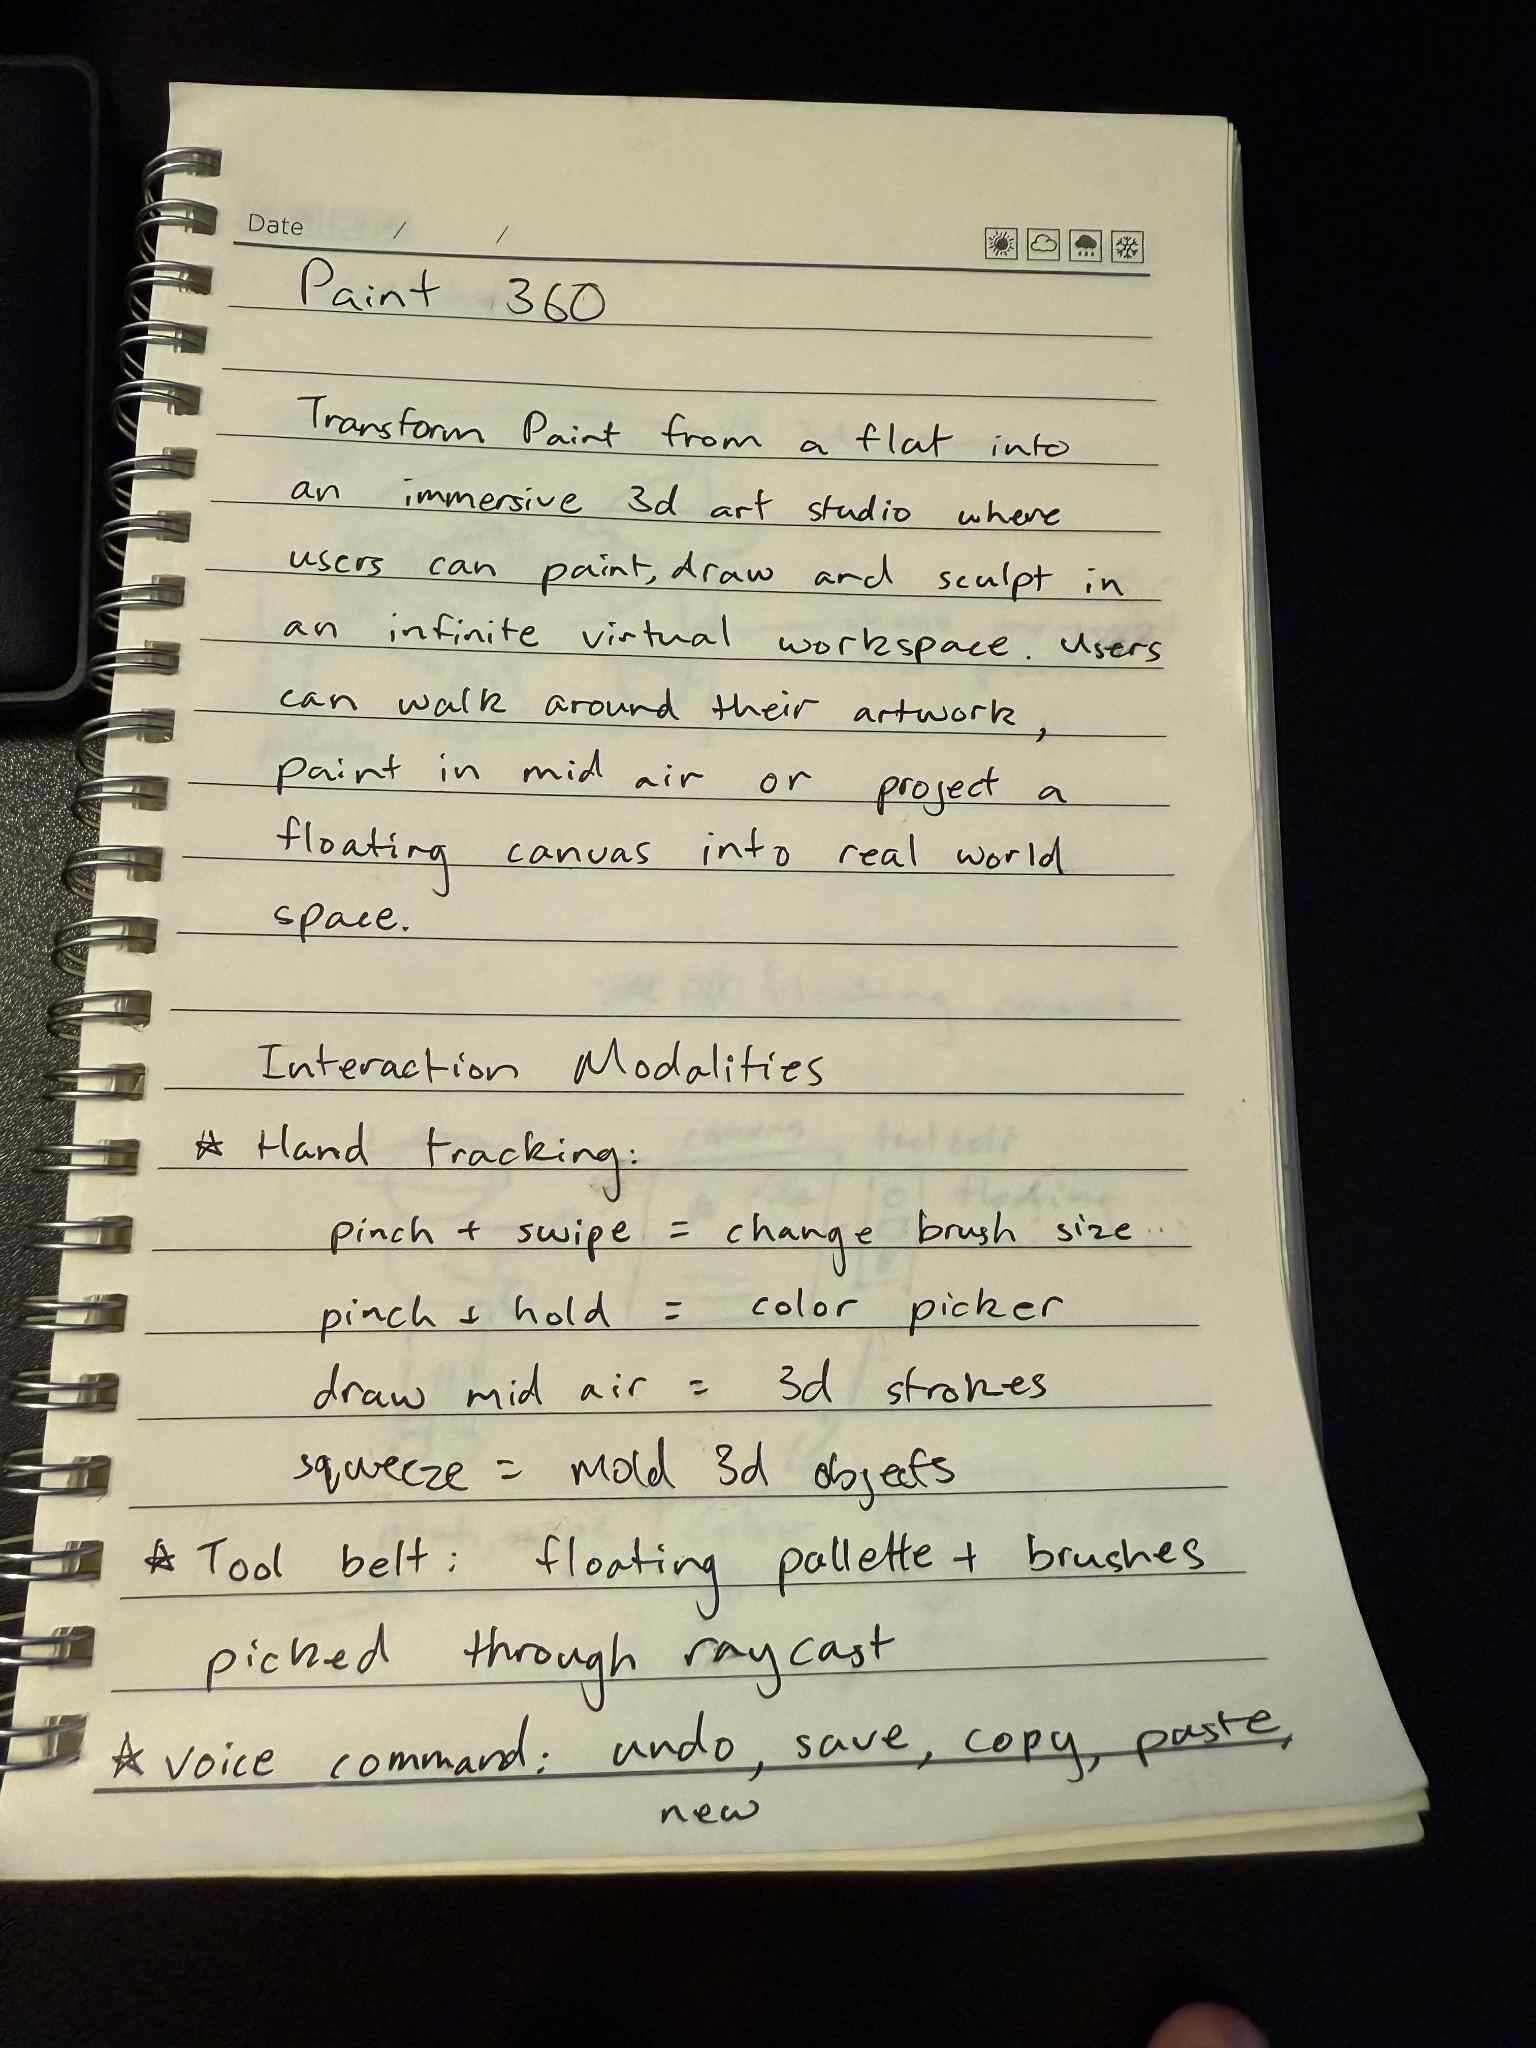 Date / /
Paint 360
Transform Paint from a flat into
an immersive 3d art studio where
users can paint, draw and sculpt in
an infinite virtual workspace. Users
can walk around their artwork,
paint in mid air or project a
floating canvas into real world
space.
Interaction Modalities
☆ Hand tracking:
pinch + swipe = change brush size
pinch + hold = color picker
draw mid air = 3d strokes
squeeze = mold 3d objects
☆ Tool belt: floating pallette + brushes
picked through raycast
☆ voice command: undo, save, copy, paste,
new